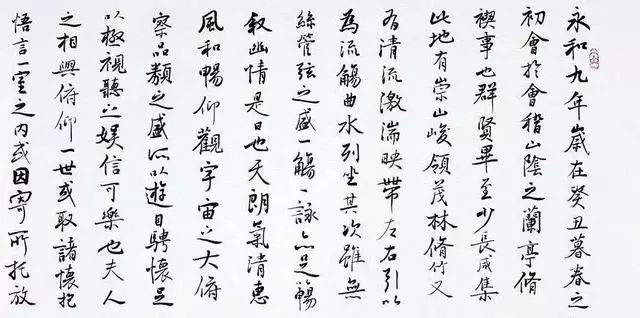 永和九年歲在癸丑暮春之
初會於會稽山陰之蘭亭脩
禊事也群賢畢至少長咸集
此地有崇山峻領茂林脩竹又
有清流激湍映帶左右引以
為流觴曲水列坐其次雖無
絲管弦之盛一觴一詠亦足暢
叙幽情是日也天朗氣清惠
風和暢仰觀宇宙之大俯
察品類之盛所以遊目騁懷足
以極視聽之娛信可樂也夫人
之相與俯仰一世或取諸懷抱
悟言一室之內或因寄所托放